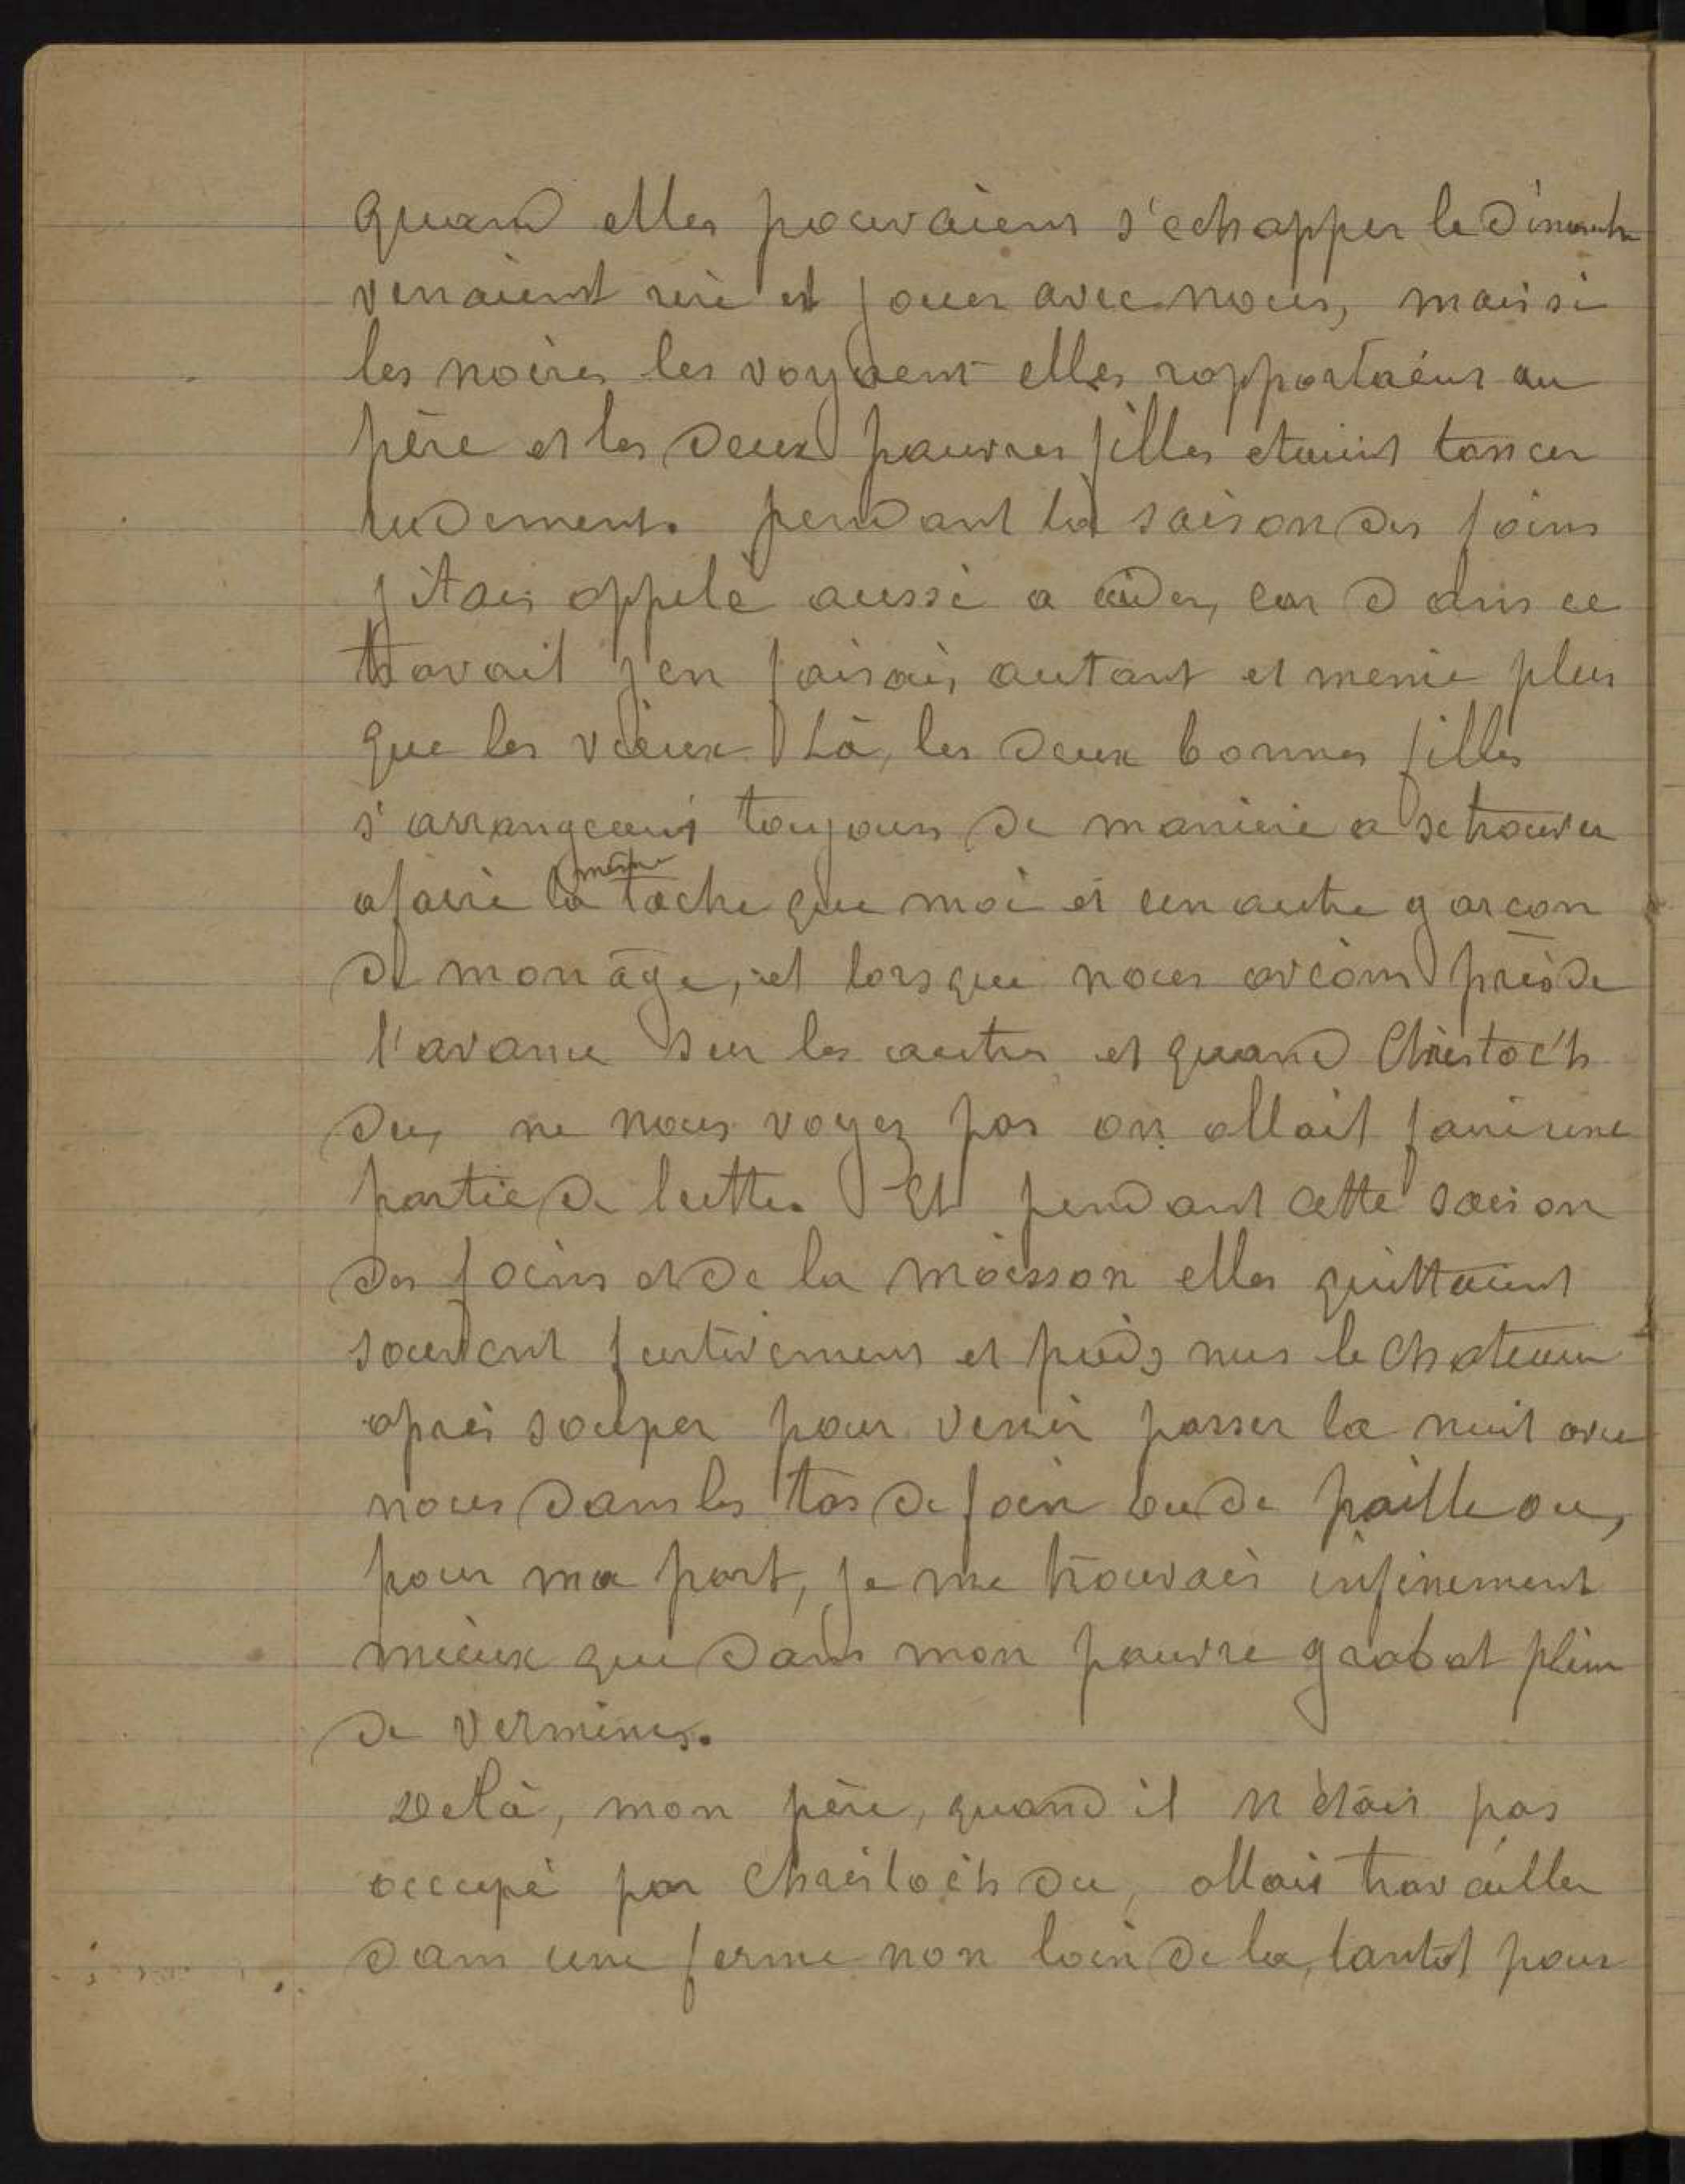 quand elles pouvaient s'echapper le dimanche
venaient rire et jouer avec nous, mais si
les noires les voyaent elles rapportaient au
père et les deux pauvres filles etaient tancer
rudement. pendant la saison des foins
j'étais appelé aussi a aider, car dans ce
travail j'en faisais autant et meme plus
que les vieux. Là, les deux bonnes filles
s'arrangeaint toujours de maniere a se trouver
a faire la même tache que moi et un autre garcon
de mon âge, et lorsque nous avions pris de
l'avance sur les autres et quand Christoc'h
du, ne nous voyez pas on allait faire une
partie de lutte. Et pendant cette saison
des foins et de la moisson elles quittaient
souvent furtivement et pieds nus le chateau
après souper pour venir passer la nuit avec
nous dans les tas de foin ou de paille ou,
pour ma part, je me trouvais infinement
mieux que dans mon pauvre grabat plein
de vermines.
De là, mon père, quand il n'étais pas
occupé par Christoc'h du, allais travailler
dans une ferme non loin de la, tantot pour